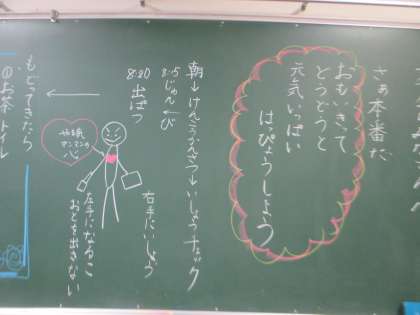 さぁ本番だ
おもいきって
どうどうと
元気いっぱい
はっぴょうしょう
朝→けんこうかんさつ→いしょうチェック
じゅんび
8:20 出ぱつ
右手にいしょう
マンマンの
心
左手になるこ
おとを出さない
もどってきたら
①お茶 トイレ